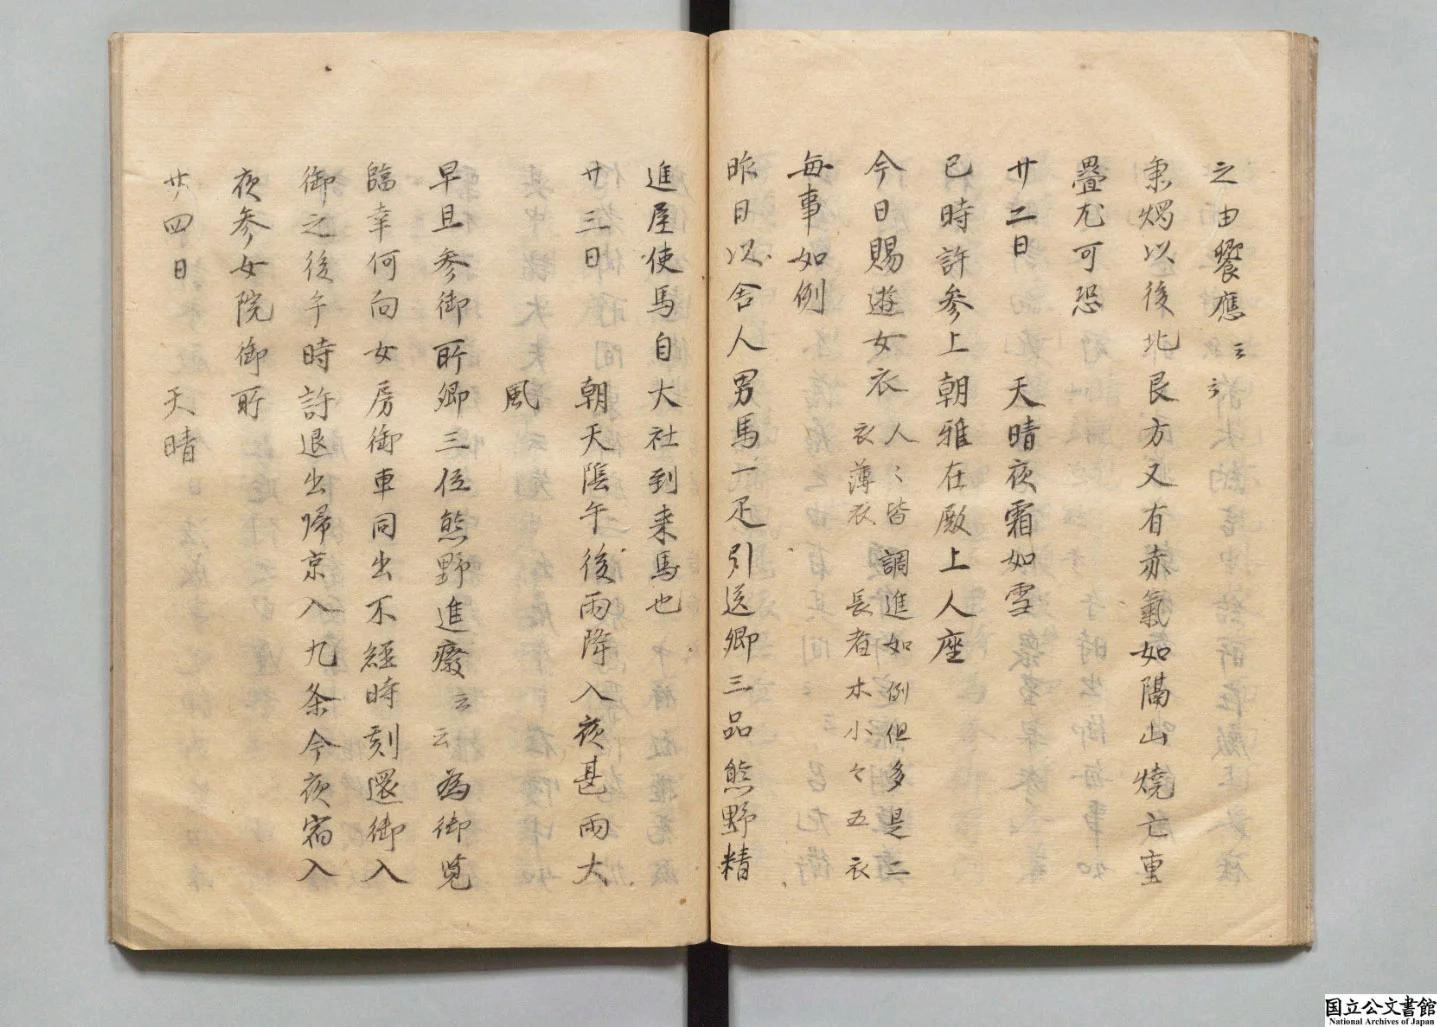 之由饗應云々
秉燭以後北艮方又有赤氣如隔山燒亡重
疊尤可恐
廿二日　天晴夜霜如雪
巳時許參上朝雅在殿上人座
今日賜遊女衣人々皆調進如例但多是二
衣薄衣長者木小々五衣
每事如例
昨日以舍人男馬一疋引送卿三品熊野精
進屋使馬自大社到来馬也
廿三日　朝天陰午後雨降入夜甚雨大
風
早旦参御所卿三位熊野進癈云云為御覧
臨幸何向女房御車同出不經時刻還御入
御之後午時許退出帰京入九条今夜宿入
夜参女院御所
廿四日　天晴
国立公文書館
National Archives of Japan